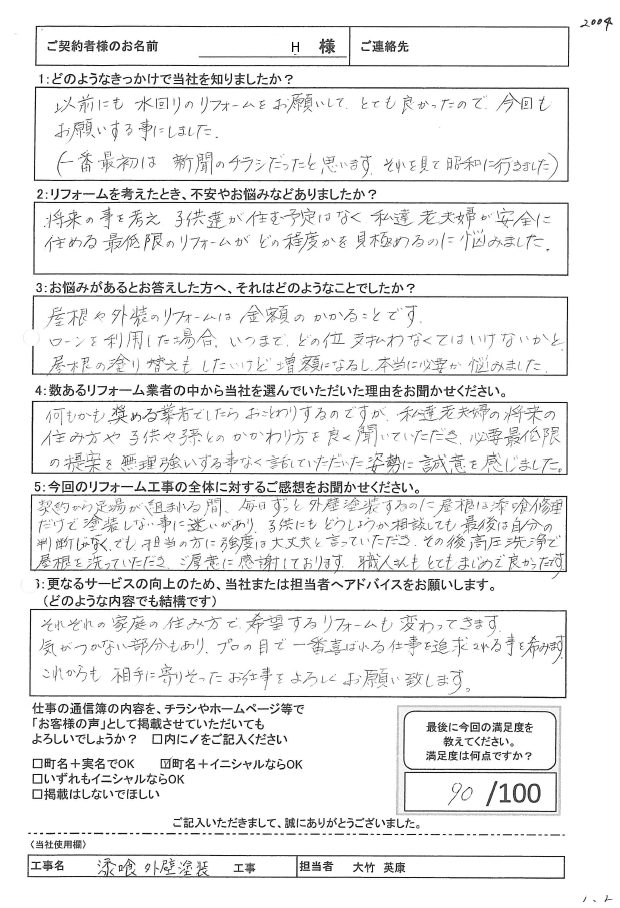 2004
ご契約者様のお名前 H 様 ご連絡先
1:どのようなきっかけで当社を知りましたか?
以前にも 水回りのリフォームをお願いして、とても良かったので、今回も
お願いする事にしました。
(一番最初は 新聞のチラシだったと思います。それを見て昭和に行きました)
2:リフォームを考えたとき、不安やお悩みなどありましたか?
将来の事を考え 子供達が住む予定はなく 私達 老夫婦が安全に
住める 最低限のリフォームが どの程度かを見極めるのに悩みました。
3:お悩みがあるとお答えした方へ、それはどのようなことでしたか?
屋根や外装のリフォームは 金額のかかることです。
ローンを利用した場合、いつまで、どの位 支払わなくてはいけないかと、
屋根の塗り替えもしたいけど 増額になるし、本当に必要か悩みました。
4:数あるリフォーム業者の中から当社を選んでいただいた理由をお聞かせください。
何もかも奨める業者でしたらおことわりするのですが、私達老夫婦の将来の
住み方や子供や孫とのかかわり方を良く聞いていただき、必要最低限
の提案を無理強いする事なく話していただいた姿勢に誠意を感じました。
5:今回のリフォーム工事の全体に対するご感想をお聞かせください。
契約から足場が組まれる間、毎日ずっと外壁塗装するのに屋根は漆喰修理
だけで塗装しない事に迷いがあり、子供にもどうしようか相談しても最後は自分の
判断しかなくても、担当の方に強度は大丈夫と言っていただき、その後高圧洗浄で
屋根を洗っていただき、ご厚意に感謝しております。職人さんもとてもまじめで良かったです。
6:更なるサービスの向上のため、当社または担当者へアドバイスをお願いします。
(どのような内容でも結構です)
それぞれの家庭の住み方で、希望するリフォームも変わってきます。
気がつかない部分もあり、プロの目で一番喜ばれる仕事を追求される事を希みます。
これからも 相手に寄りそったお仕事をよろしくお願い致します。
仕事の通信簿の内容を、チラシやホームページ等で
「お客様の声」として掲載させていただいても
よろしいでしょうか? □内に✓をご記入ください
□町名+実名でOK ☑町名+イニシャルならOK
□いずれもイニシャルならOK
□掲載はしないでほしい
最後に今回の満足度を
教えてください。
満足度は何点ですか?
90 /100
ご記入いただきまして、誠にありがとうございました。
(当社使用欄)
工事名 漆喰、外壁塗装 工事 担当者 大竹 英康